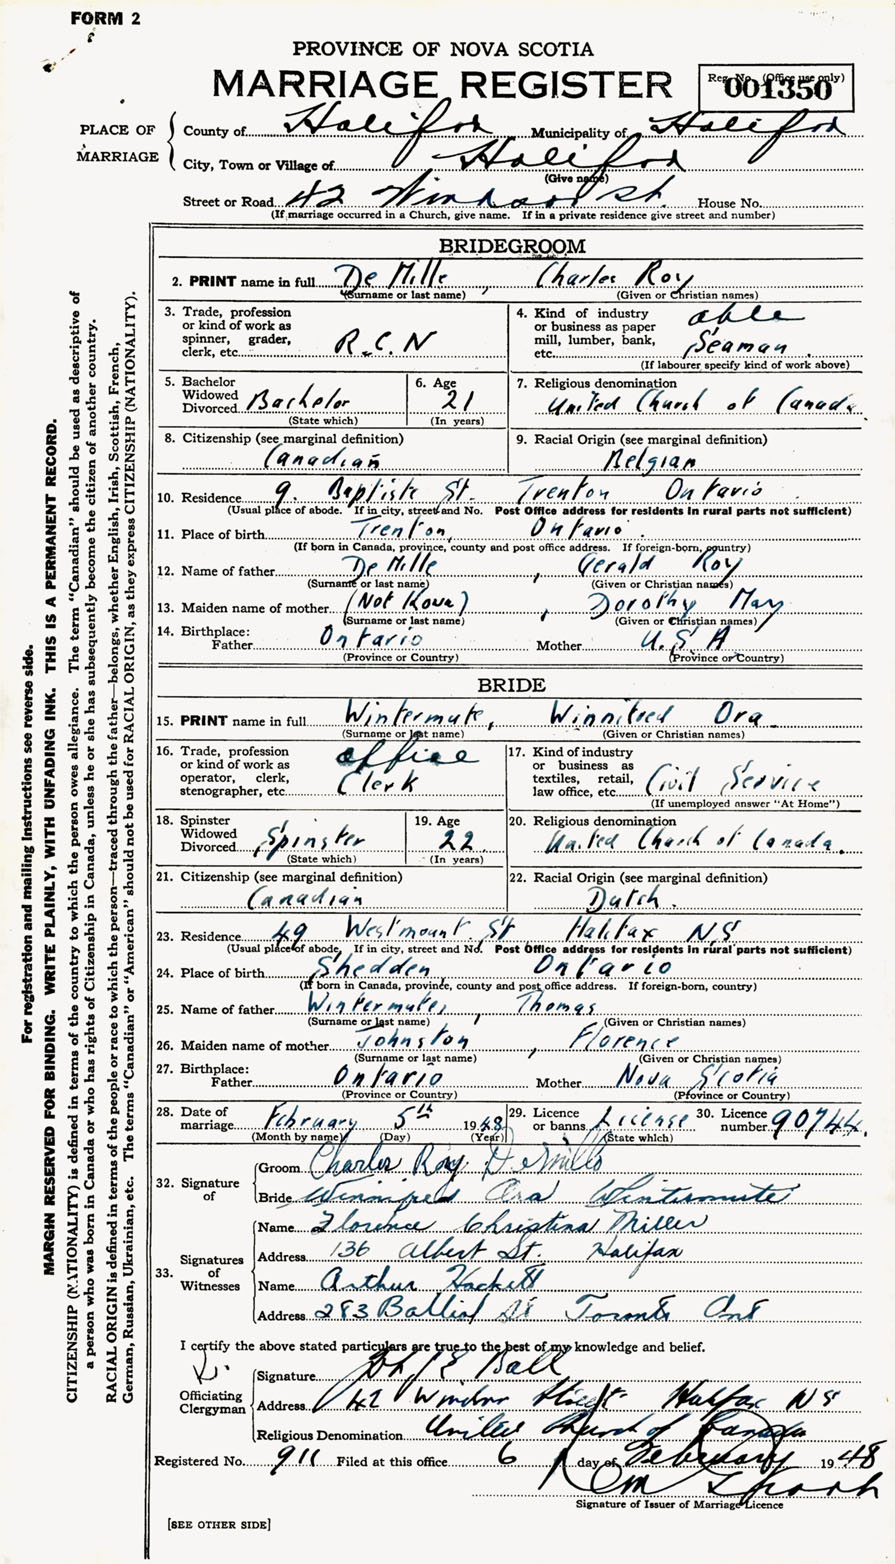 FORM 2
PROVINCE OF NOVA SCOTIA
MARRIAGE REGISTER
Reg. No. (Office use only)
001350
PLACE OF MARRIAGE
County of Halifax Municipality of Halifax
City, Town or Village of Halifax
(Give name)
Street or Road 42 Windsor St. House No.
(If marriage occurred in a Church, give name. If in a private residence give street and number)
BRIDEGROOM
2. PRINT name in full De Mille, Charles Roy
(Surname or last name) (Given or Christian names)
3. Trade, profession or kind of work as spinner, grader, clerk, etc. R.C.N
4. Kind of industry or business as paper mill, lumber, bank, etc. able Seaman.
(If labourer specify kind of work above)
5. Bachelor Widowed Divorced Bachelor
(State which)
6. Age 21
(In years)
7. Religious denomination
United Church of Canada.
8. Citizenship (see marginal definition)
Canadian
9. Racial Origin (see marginal definition)
Belgian
10. Residence 9. Baptiste St. Trenton Ontario
(Usual place of abode. If in city, street and No. Post Office address for residents in rural parts not sufficient)
11. Place of birth Trenton, Ontario.
(If born in Canada, province, county and post office address. If foreign-born, country)
12. Name of father De Mille, Gerald Roy
(Surname or last name) (Given or Christian names)
13. Maiden name of mother (Not Kown), Dorothy May
(Surname or last name) (Given or Christian names)
14. Birthplace:
Father Ontario Mother U.S A
(Province or Country) (Province or Country)
BRIDE
15. PRINT name in full Wintermute, Winnifred Ora
(Surname or last name) (Given or Christian names)
16. Trade, profession or kind of work as operator, clerk, stenographer, etc. office Clerk
17. Kind of industry or business as textiles, retail, law office, etc. Civil Service
(If unemployed answer "At Home")
18. Spinster Widowed Divorced Spinster
(State which)
19. Age 22
(In years)
20. Religious denomination
United Church of Canada.
21. Citizenship (see marginal definition)
Canadian
22. Racial Origin (see marginal definition)
Dutch.
23. Residence 49 Westmount St Halifax NS
(Usual place of abode, If in city, street and No. Post Office address for residents in rural parts not sufficient)
24. Place of birth Shedden Ontario
(If born in Canada, province, county and post office address. If foreign-born, country)
25. Name of father Wintermute, Thomas
(Surname or last name) (Given or Christian names)
26. Maiden name of mother Johnston, Florence
(Surname or last name) (Given or Christian names)
27. Birthplace:
Father Ontario Mother Nova Scotia
(Province or Country) (Province or Country)
28. Date of marriage February 5th 1948
(Month by name) (Day) (Year)
29. Licence or banns License
(State which)
30. Licence number 90744.
32. Signature of
Groom Charles Roy DeMille
Bride Winnifred Ora Wintermute
33. Signatures of Witnesses
Name Florence Christina Miller
Address 136 Albert St. Halifax
Name Arthur Hackett
Address 283 Balliol St Toronto Ont
I certify the above stated particulars are true to the best of my knowledge and belief.
Officiating Clergyman
Signature Ball
Address 42 Windsor Street Halifax NS
Religious Denomination United Church of Canada
Registered No. 911 Filed at this office 6 day of February 1948
Signature of Issuer of Marriage Licence
[SEE OTHER SIDE]
For registration and mailing instructions see reverse side.
MARGIN RESERVED FOR BINDING. WRITE PLAINLY, WITH UNFADING INK. THIS IS A PERMANENT RECORD.
CITIZENSHIP (NATIONALITY) is defined in terms of the country to which the person owes allegiance. The term "Canadian" should be used as descriptive of
a person who was born in Canada or who has rights of Citizenship in Canada, unless he or she has subsequently become the citizen of another country.
RACIAL ORIGIN is defined in terms of the people or race to which the person—traced through the father—belongs, whether English, Irish, Scottish, French,
German, Russian, Ukrainian, etc. The terms "Canadian" or "American" should not be used for RACIAL ORIGIN, as they express CITIZENSHIP (NATIONALITY).